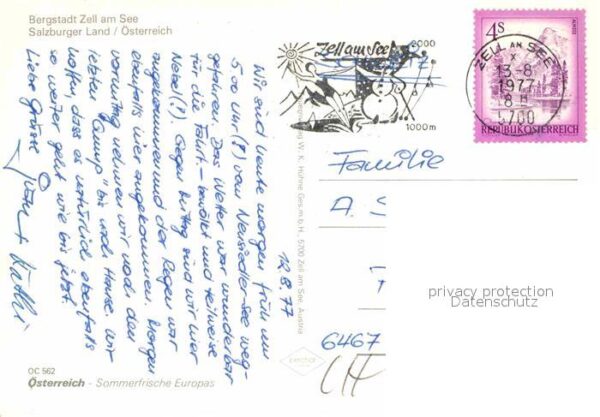 Bergstadt Zell am See
Salzburger Land / Österreich
12.8.77
Wir sind heute morgen früh um
5.00 Uhr (!) vom Neusiedler-See weg-
gefahren. Das Wetter war wunderbar
für die Fahrt - bewölkt und teilweise
Nebel (!). Gegen Mittag sind wir hier
angekommen und der Regen war
ebenfalls hier angekommen. Morgen
vormittag nehmen wir noch den
letzten "Sprung" bis nach Hause. Wir
hoffen, dass es natürlich ebenfalls
so weiter geht wie bis jetzt.
Liebe Grüsse
OC 562
Österreich - Sommerfrische Europas
W. K. Hühne Ges.m.b.H., 5700 Zell am See, Austria
Zell am See
2000
1000 m
ZELL AM SEE
13.-8.
1977
8 h
5700
4 S
REPUBLIK ÖSTERREICH
Familie
A. S
6467
privacy protection
Datenschutz